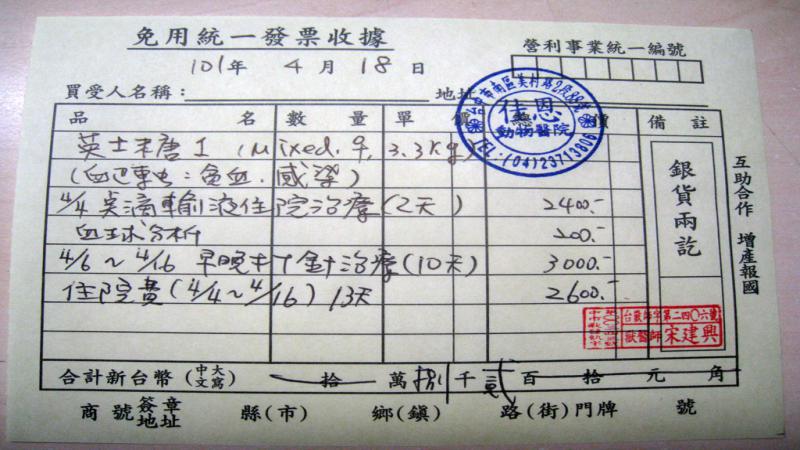 免用統一發票收據
營利事業統一編號
101年 4月 18日
買受人名稱： 地址
台中市南區美村路2段88號
佳恩
動物醫院
TEL:(04)23713806
品名 數量 單價 價 備註
英士 (Mixed. ♀, 3.3kg)
(血: 貧血. 感染)
4/4 點滴輸液住院治療(2天) 2400.-
血球分析 200.-
4/6~4/16 早晚打針治療(10天) 3000.-
住院費(4/4~4/16) 13天 2600.-
銀貨兩訖
互助合作 增產報國
台獸師字第二四〇六號
獸醫師 宋建興
合計新台幣(中文大寫) 拾 萬 捌 千 貳 百 拾 元 角
商號簽章地址 縣(市) 鄉(鎮) 路(街)門牌 號